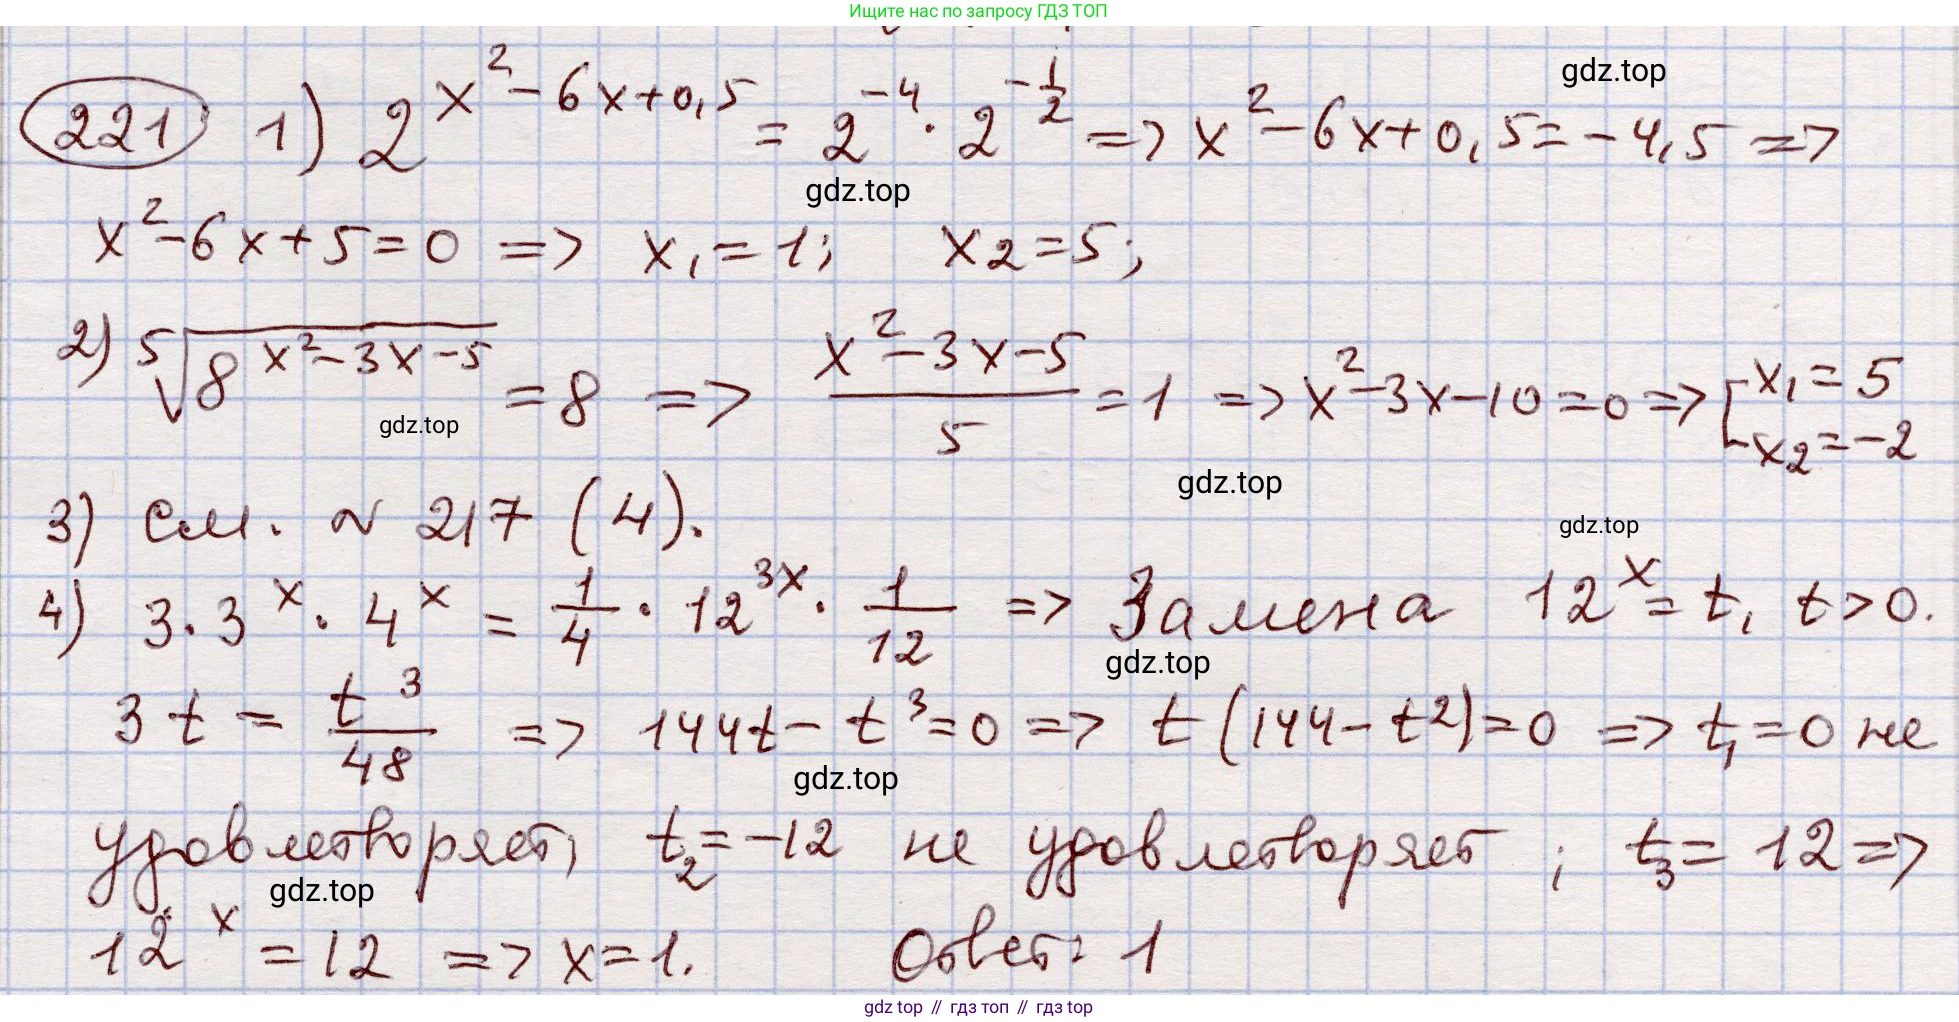 Ищите нас по запросу ГДЗ ТОП
gdz.top
221 1) 2^(x²-6x+0,5) = 2^(-4) · 2^(-1/2) => x²-6x+0,5=-4,5 =>
gdz.top
x²-6x+5=0 => x₁=1; x₂=5;
2) ⁵√(8^(x²-3x-5)) = 8 => (x²-3x-5)/5 = 1 => x²-3x-10=0 => [x₁=5 x₂=-2
gdz.top
gdz.top
3) См. ~ 217 (4).
gdz.top
4) 3·3^x · 4^x = 1/4 · 12^(3x) · 1/12 => Замена 12^x = t, t>0.
gdz.top
3t = t³/48 => 144t - t³=0 => t(144-t²)=0 => t₁=0 не
gdz.top
удовлетворяет, t₂=-12 не удовлетворяет; t₃=12 =>
gdz.top
12^x = 12 => x=1. Ответ: 1
gdz top // гдз топ // гдз top